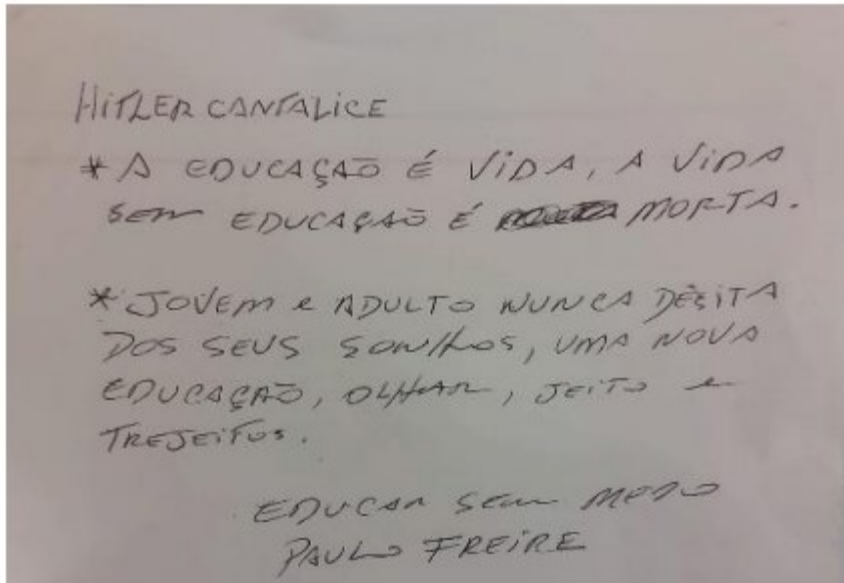 HITLER CANTALICE
* A EDUCAÇÃO É VIDA, A VIDA
SEM EDUCAÇÃO É MORTA.
* JOVEM e ADULTO NUNCA DESITA
DOS SEUS SONHOS, UMA NOVA
EDUCAÇÃO, OLHAR, JEITO e
TREJEITOS.
EDUCAR SEM MEDO
PAULO FREIRE